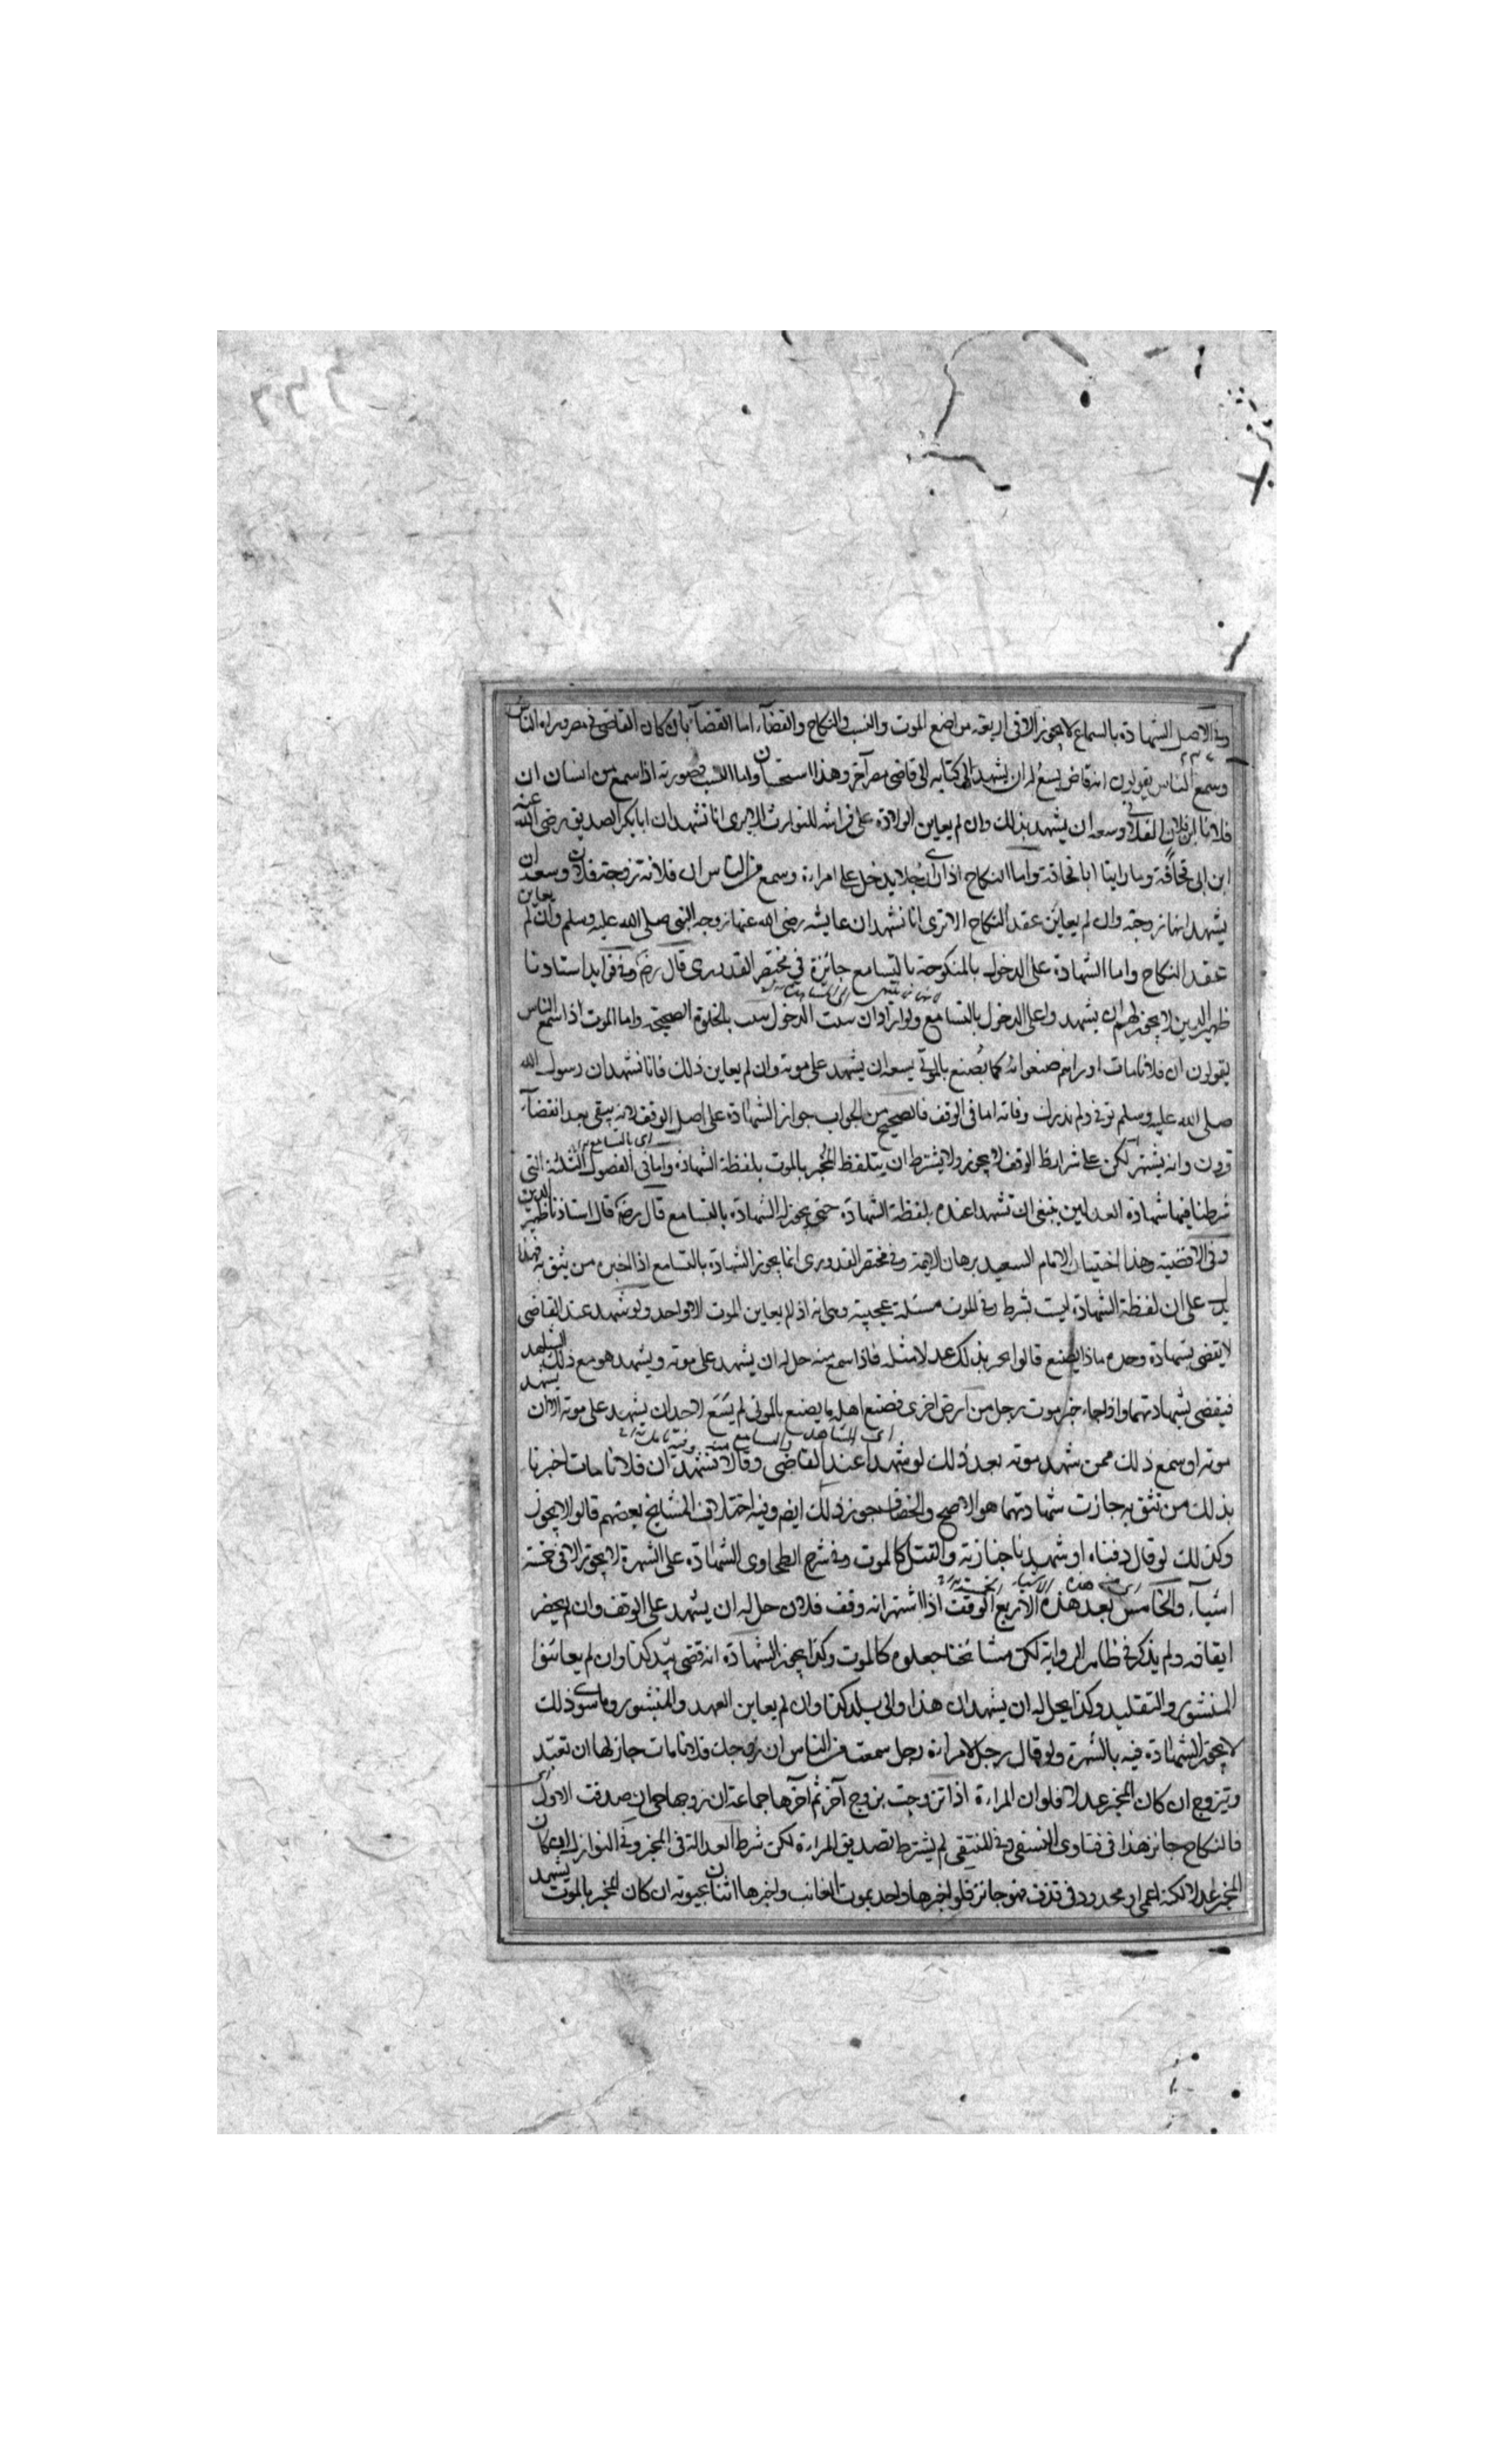 وفي الاصل الشهادة بالسماع لا يجوز الا في اربعة مواضع الموت والنسب والنكاح والقضاء اما القضاء بان كان القاضي في مصر وراه الناس
وسمع الناس يقولون انه قاض يسع له ان يشهد الى كتابه الى قاضي مصر آخر وهذا استحسان واما النسب فصورته اذا سمع من انسان ان
فلانا ابن فلان الفلاني وسعه ان يشهد بذلك وان لم يعاين الولادة على فراشه للتوارث الا يرى انا نشهد ان ابا بكر الصديق رضي الله عنه
ابن ابي قحافة وما راينا ابا قحافة واما النكاح اذا رأى رجلا يدخل على امراة وسمع من الناس ان فلانة زوجة فلان وسعه ان
يشهد انها زوجته وان لم يعاين عقد النكاح الا ترى انا نشهد ان عايشه رضي الله عنها زوجه النبي صلى الله عليه وسلم وان لم يعاين
عقد النكاح واما الشهادة على الدخول بالمنكوحة بالتسامع جائزة في مختصر القدوري قال رضه وفي فوايد استادنا
ظهير الدين لا يجوز لهم ان يشهدوا على الدخول بالتسامع ولو ارادوان يثبت الدخول يثبت بالخلوة الصحيحة واما الموت اذا سمع الناس
يقولون ان فلانا مات او راهم صنعوا به كما يُصنع بالموتى يسعه ان يشهد على موته وان لم يعاين ذلك فانا نشهد ان رسول الله
صلى الله عليه وسلم توفي ولم ندرك وفاته اما في الوقف فالصحيح من الجواب جواز الشهادة على اصل الوقف لانه يبقى بعد انقضاء
قرون وانه يشتهر لكن على شرايط الوقف لا يجوز ولا يشترط ان يتلفظ المُخبر بالموت بلفظة الشهادة واما في الفصول الثلثة التي
شرطنا فيها شهادة العدلين ينبغي ان تشهدا عنده بلفظة الشهادة حتى يجوز له الشهادة بالتسامع قال رضه قال استاذنا ظهير الدين
وفي الاقضية وهذا اختيار الامام السعيد برهان الايمة وفي مختصر القدوري انما يجوز الشهادة بالتسامع اذا اخبره من يثق به فهذا
يدل على ان لفظة الشهادة ليست بشرط وفي الموت مسئلة عجيبة وهي انه اذا لم يعاين الموت الا واحد ولو شهد عند القاضي
لا يقضي بشهادة وحده ماذا يصنع قالوا يخبر بذلك عدلا مثله فاذا سمع منه حل له ان يشهد على موته ويشهد هو مع ذلك الشاهد
فيقضي بشهادتهما واذا جاء خبر موت رجل من ارض اخرى فصنع اهله ما يصنع بالموتى لم يَسَع لاحد ان يشهد على موته الا ان يشهد
موته او سمع ذلك ممن شهد موته بعد ذلك لو شهدا عند القاضي وقالا نشهد ان فلانا مات اخبرنا
بذلك من نثق به جازت شهادتهما هو الاصح والخصاف جوز ذلك ايضم وفيه اختلاف المشايخ بعضهم قالوا لا يجوز
وكذلك لو قال دفناه او شهدنا جنازته والقتل كالموت وفي شرح الطحاوي الشهادة على الشهرة لا يجوز الا في خمسة
اشياء والخامس بعد هذه الاربع الوقف اذا اشتهر انه وقف فلان حل له ان يشهد على الوقف وان لم يحضر
ايقافه ولم يذكر في ظاهر الرواية لكن مشائخنا جعلوه كالموت وكذا يجوز الشهادة انه قضى ببلد كذا وان لم يعاينوا
المنشور والتقليد وكذا يحل له ان يشهد ان هذا والي بلد كذا وان لم يعاين العهد والمنشور وما سوى ذلك
لا يجوز الشهادة فيه بالشهرة ولو قال رجل لامراة رجل سمعت من الناس ان زوجك فلانا مات جاز لها ان تعتد
ويتزوج ان كان المخبر عدلا فلو ان المراة اذا تزوجت بزوج آخر ثم آخرها جماعة ان زوجها حي ان صدقت الاول
فالنكاح جائز هذا في فتاوى النسفي وفي المنتقى لم يشترط تصديق المراة لكن شرط العدالة في المخبر وفي النوازل ان كان
المخبر عدلا لكنه اعمى او محدود في قذف فهو جائز فلو اخبرها واحد بموت الغائب واخبرها اثنان بحيوته ان كان المخبر بالموت يشهد